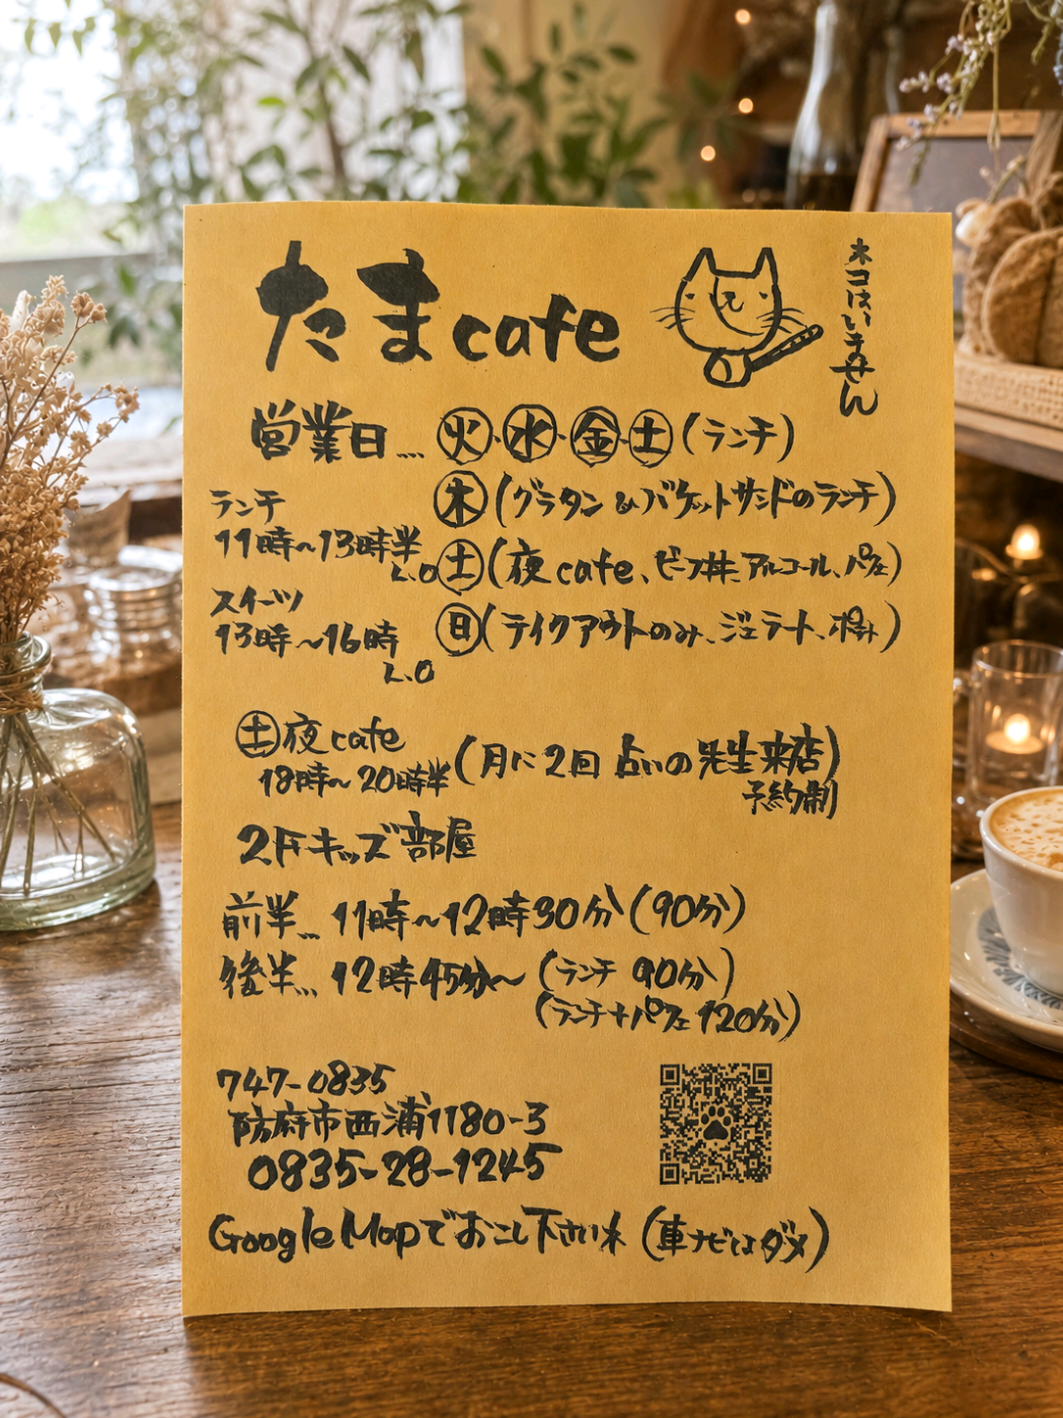 たまcafe
ネコはいません
営業日…火・水・金・土(ランチ)
木(グラタン&バケットサンドのランチ)
土(夜cafe、ビーフ丼、アルコール、パフェ)
日(テイクアウトのみ、ジェラート、ポテト)
ランチ
11時~13時半
L.O
スイーツ
13時~16時
L.O
土夜cafe
18時~20時半(月に2回占いの先生来店)
予約制
2Fキッズ部屋
前半…11時~12時30分(90分)
後半…12時45分~(ランチ 90分)
(ランチ+パフェ 120分)
747-0835
防府市西浦1180-3
0835-28-1245
Google Mapでおこし下さいネ(車ナビはダメ)